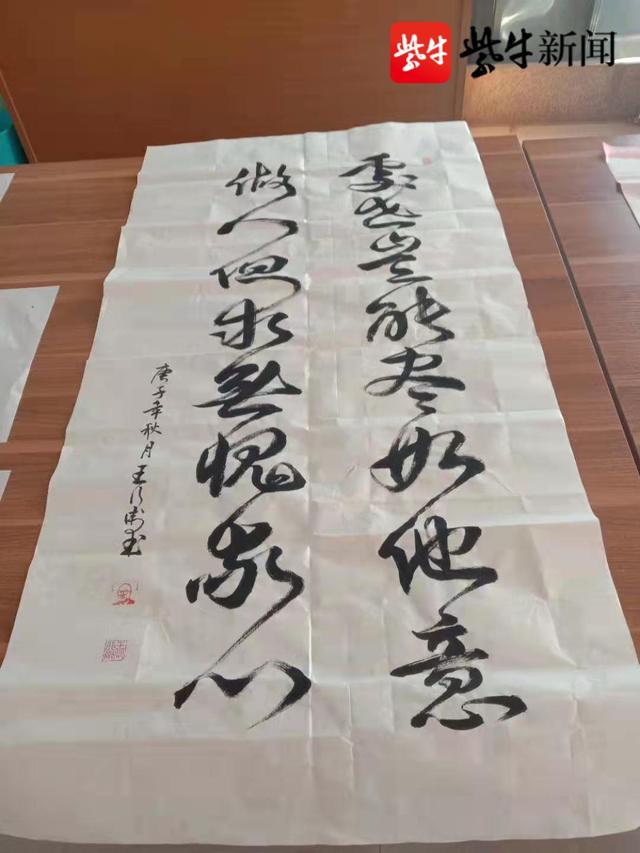 紫牛 紫牛新闻
處世豈能尽如他意
做人但求无愧我心
庚子年秋月王